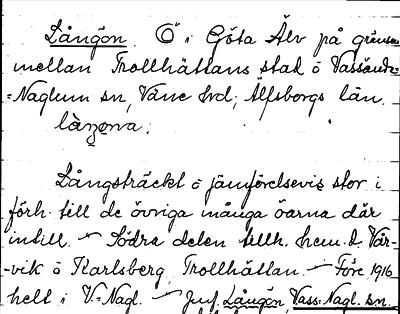 Långön. Ö i Göta Älv på gränsen
mellan Trollhättans stad o Vassända-
-Naglum sn, Väne hrd, Älfsborgs län.
Långsträckt o jämförelsevis stor i
förh. till de övriga många öarna där
intill. — Södra delen tillh. hem.d. Vär-
-vik o Karlsberg, Trollhättan. — Före 1916
helt i V-Nagl. — Jmf. Långön, Vass.Nagl. sn.